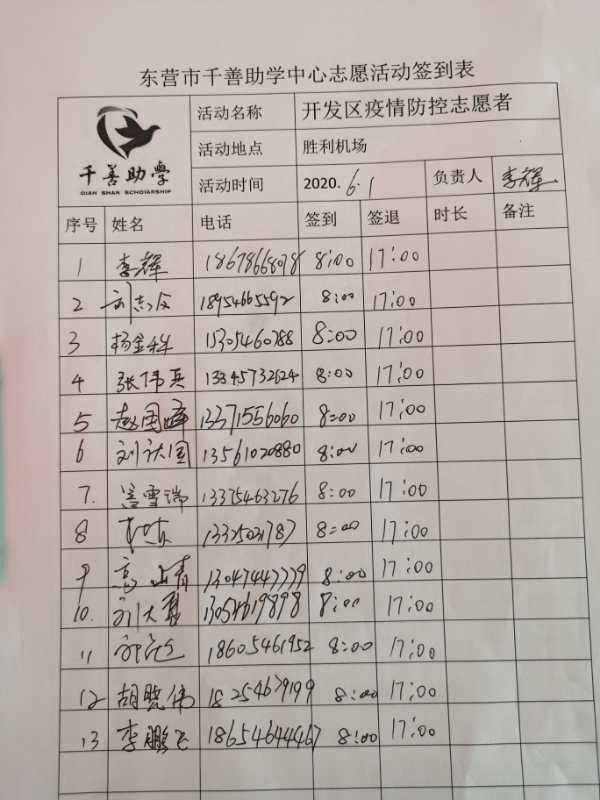 东营市千善助学中心志愿活动签到表
千善助学
QIAN SHAN SCHOLARSHIP
活动名称 开发区疫情防控志愿者
活动地点 胜利机场
活动时间 2020.6.1 负责人 李辉
序号 姓名 电话 签到 签退 时长 备注
1 李辉 18678668078 8:00 17:00
2 18954665592 8:00 17:00
3 杨金科 15305460788 8:00 17:00
4 张伟兵 13345732624 8:00 17:00
5 赵国峰 13371556060 8:00 17:00
6 13561020880 8:00 17:00
7. 盖雪瑞 13375463276 8:00 17:00
8 13325031787 8:00 17:00
9 13047447779 8:00 17:00
10. 13054619898 8:00 17:00
11 18605461952 8:00 17:00
12 胡晓伟 18254679199 8:00 17:00
13 李鹏飞 18654644467 8:00 17:00